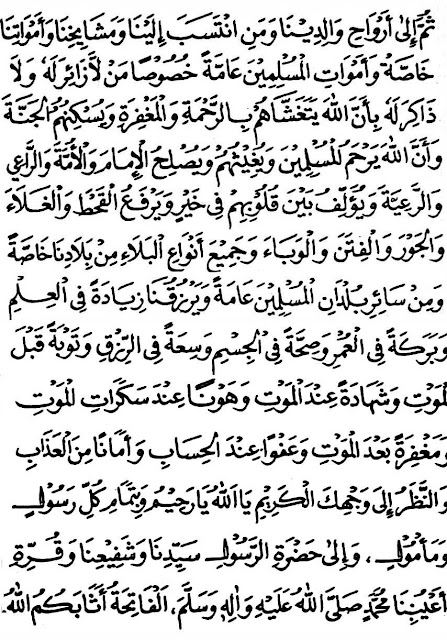 ثُمَّ إِلَى أَرْوَاحِ وَالِدِيْنَا وَمَنِ انْتَسَبَ إِلَيْنَا وَمَشَايِخِنَا وَأَمْوَاتِنَا
خَاصَّةً وَأَمْوَاتِ الْمُسْلِمِيْنَ عَامَّةً خُصُوْصًا مَنْ لَا زَائِرَ لَهُ وَلَا
ذَاكِرَ لَهُ بِأَنَّ اللهَ يَتَغَشَّاهُمْ بِالرَّحْمَةِ وَالْمَغْفِرَةِ وَيُسْكِنُهُمُ الْجَنَّةَ
وَأَنَّ اللهَ يَرْحَمُ الْمُسْلِمِيْنَ وَيُغِيْثُهُمْ وَيُصْلِحُ الْإِمَامَ وَالْأُمَّةَ وَالرَّاعِي
وَالرَّعِيَّةَ وَيُؤَلِّفُ بَيْنَ قُلُوْبِهِمْ فِي خَيْرٍ وَيَرْفَعُ الْقَحْطَ وَالْغَلَاءَ
وَالْجَوْرَ وَالْفِتَنَ وَالْوَبَاءَ وَجَمِيْعَ أَنْوَاعِ الْبَلَاءِ مِنْ بِلَادِنَا خَاصَّةً
وَمِنْ سَائِرِ بُلْدَانِ الْمُسْلِمِيْنَ عَامَةً وَيَرْزُقُنَا زِيَادَةً فِي الْعِلْمِ
وَبَرَكَةً فِي الْعُمْرِ وَصِحَّةً فِي الْجِسْمِ وَسِعَةً فِي الرِّزْقِ وَتَوْبَةً قَبْلَ
لْمَوْتِ وَشَهَادَةً عِنْدَ الْمَوْتِ وَهَوْنًا عِنْدَ سَكَرَاتِ الْمَوْتِ
وَمَغْفِرَةً بَعْدَ الْمَوْتِ وَعَفْوًا عِنْدَ الْحِسَابِ وَأَمَانًا مِنَ الْعَذَابِ
وَالنَّظَرُ إِلَى وَجْهِكَ الْكَرِيْمِ يَا اَللهُ يَا رَحِيْمُ وَبِتَمَامِ كُلِّ رَسُوْلٍ
وَمَأْمُوْلٍ ، وَإِلَى حَضْرَةِ الرَّسُوْلِ سَيِّدِنَا وَشَفِيْعِنَا وَقُرَّةِ
أَعْيُنِنَا مُحَمَّدٍ صَلَّى اللهُ عَلَيْهِ وَاٰلِهِ وَسَلَّمَ، الْفَاتِحَةُ أَثَابَكُمُ اللهُ.